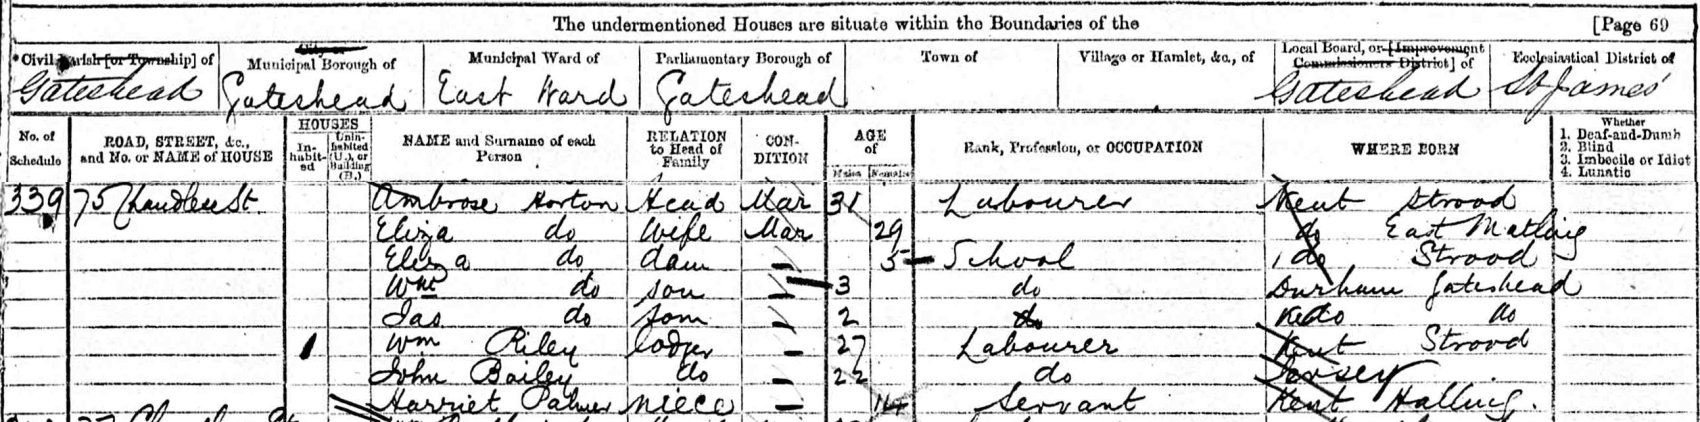 The undermentioned Houses are situate within the Boundaries of the [Page 69
Civil Parish [or Township] of City or Municipal Borough of Municipal Ward of Parliamentary Borough of Town of Village or Hamlet, &c., of Local Board, or [Improvement Commissioners District] of Ecclesiastical District of
Gateshead Gateshead East Ward Gateshead Gateshead St James'
No. of Schedule ROAD, STREET, &c., and No. or NAME of HOUSE HOUSES Inhabited Uninhabited (U.), or Building (B.) NAME and Surname of each Person RELATION to Head of Family CONDITION AGE of Males Females Rank, Profession, or OCCUPATION WHERE BORN Whether
1. Deaf-and-Dumb
2. Blind
3. Imbecile or Idiot
4. Lunatic
339 75 St Ambrose Horton Head Mar 31 Labourer Kent Strood
Eliza do Wife Mar 29 do East Malling
Eliza do daur 5 School do Strood
Wm do son 3 do Durham Gateshead
Jas do son 2 do do do
1 Wm Riley lodger 27 Labourer Kent Strood
John Bailey do 22 do Jersey
Harriet Palmer niece 14 Servant Kent Halling.